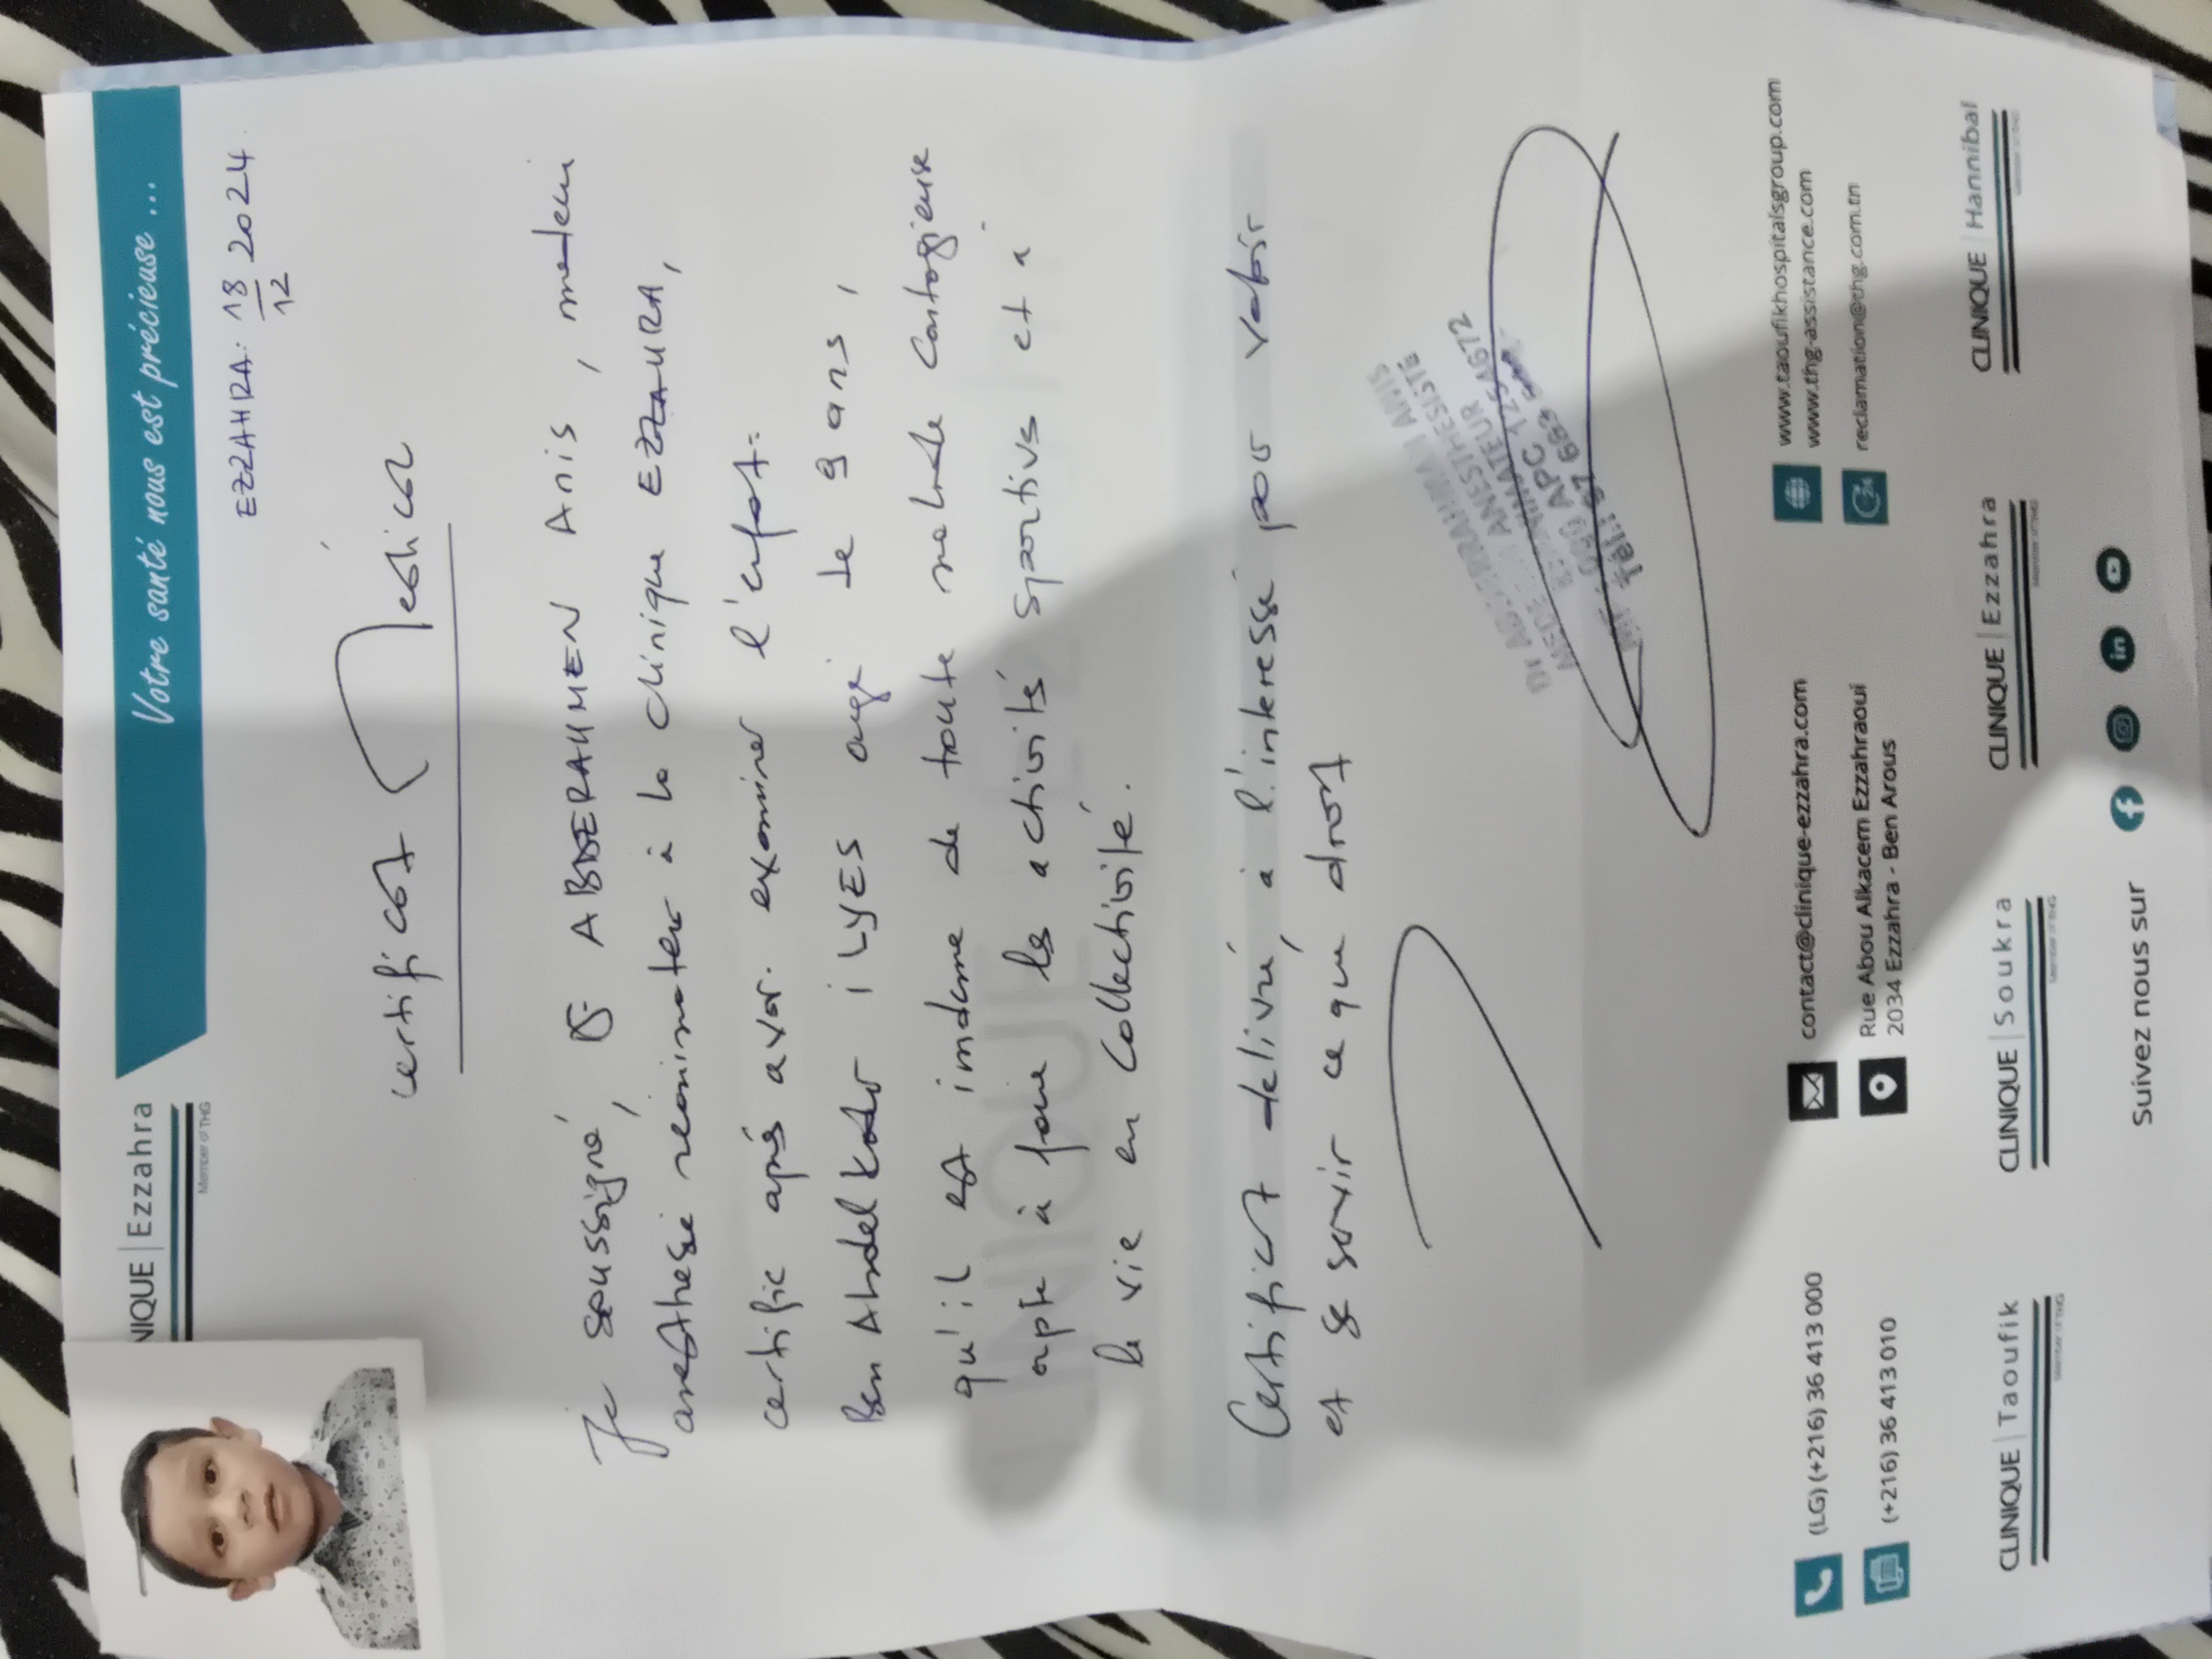 NIQUE | Ezzahra
Member of THG
Votre santé nous est précieuse ...
EZZAHRA: 18 2024
12
certificat Médical
Je soussigné, Dr ABDERAHMEN Anis, medecin
anesthesie reanimateur à la clinique EZZAHRA,
certifie aprés avoir examiner l'enfant
Ben Abdelkader iLYES agé de 9 ans,
qu'il est indemne de toute maladie contagieuse
apte à faire les activités sportives et à
la vie en collectivité.
Certificat delivré, à l'interessé pour valoir
et se servir ce que droit
ABDERRAHMAN ANIS
ANESTHESISTE
REANIMATEUR
APC 1254672
Tél.: 97
(LG) (+216) 36 413 000
(+216) 36 413 010
contact@clinique-ezzahra.com
Rue Abou Alkacem Ezzahraoui
2034 Ezzahra - Ben Arous
www.taoufikhospitalsgroup.com
www.thg-assistance.com
reclamation@thg.com.tn
CLINIQUE | Taoufik
Member of THG
CLINIQUE | Soukra
Member of THG
CLINIQUE | Ezzahra
Member of THG
CLINIQUE | Hannibal
Suivez nous sur